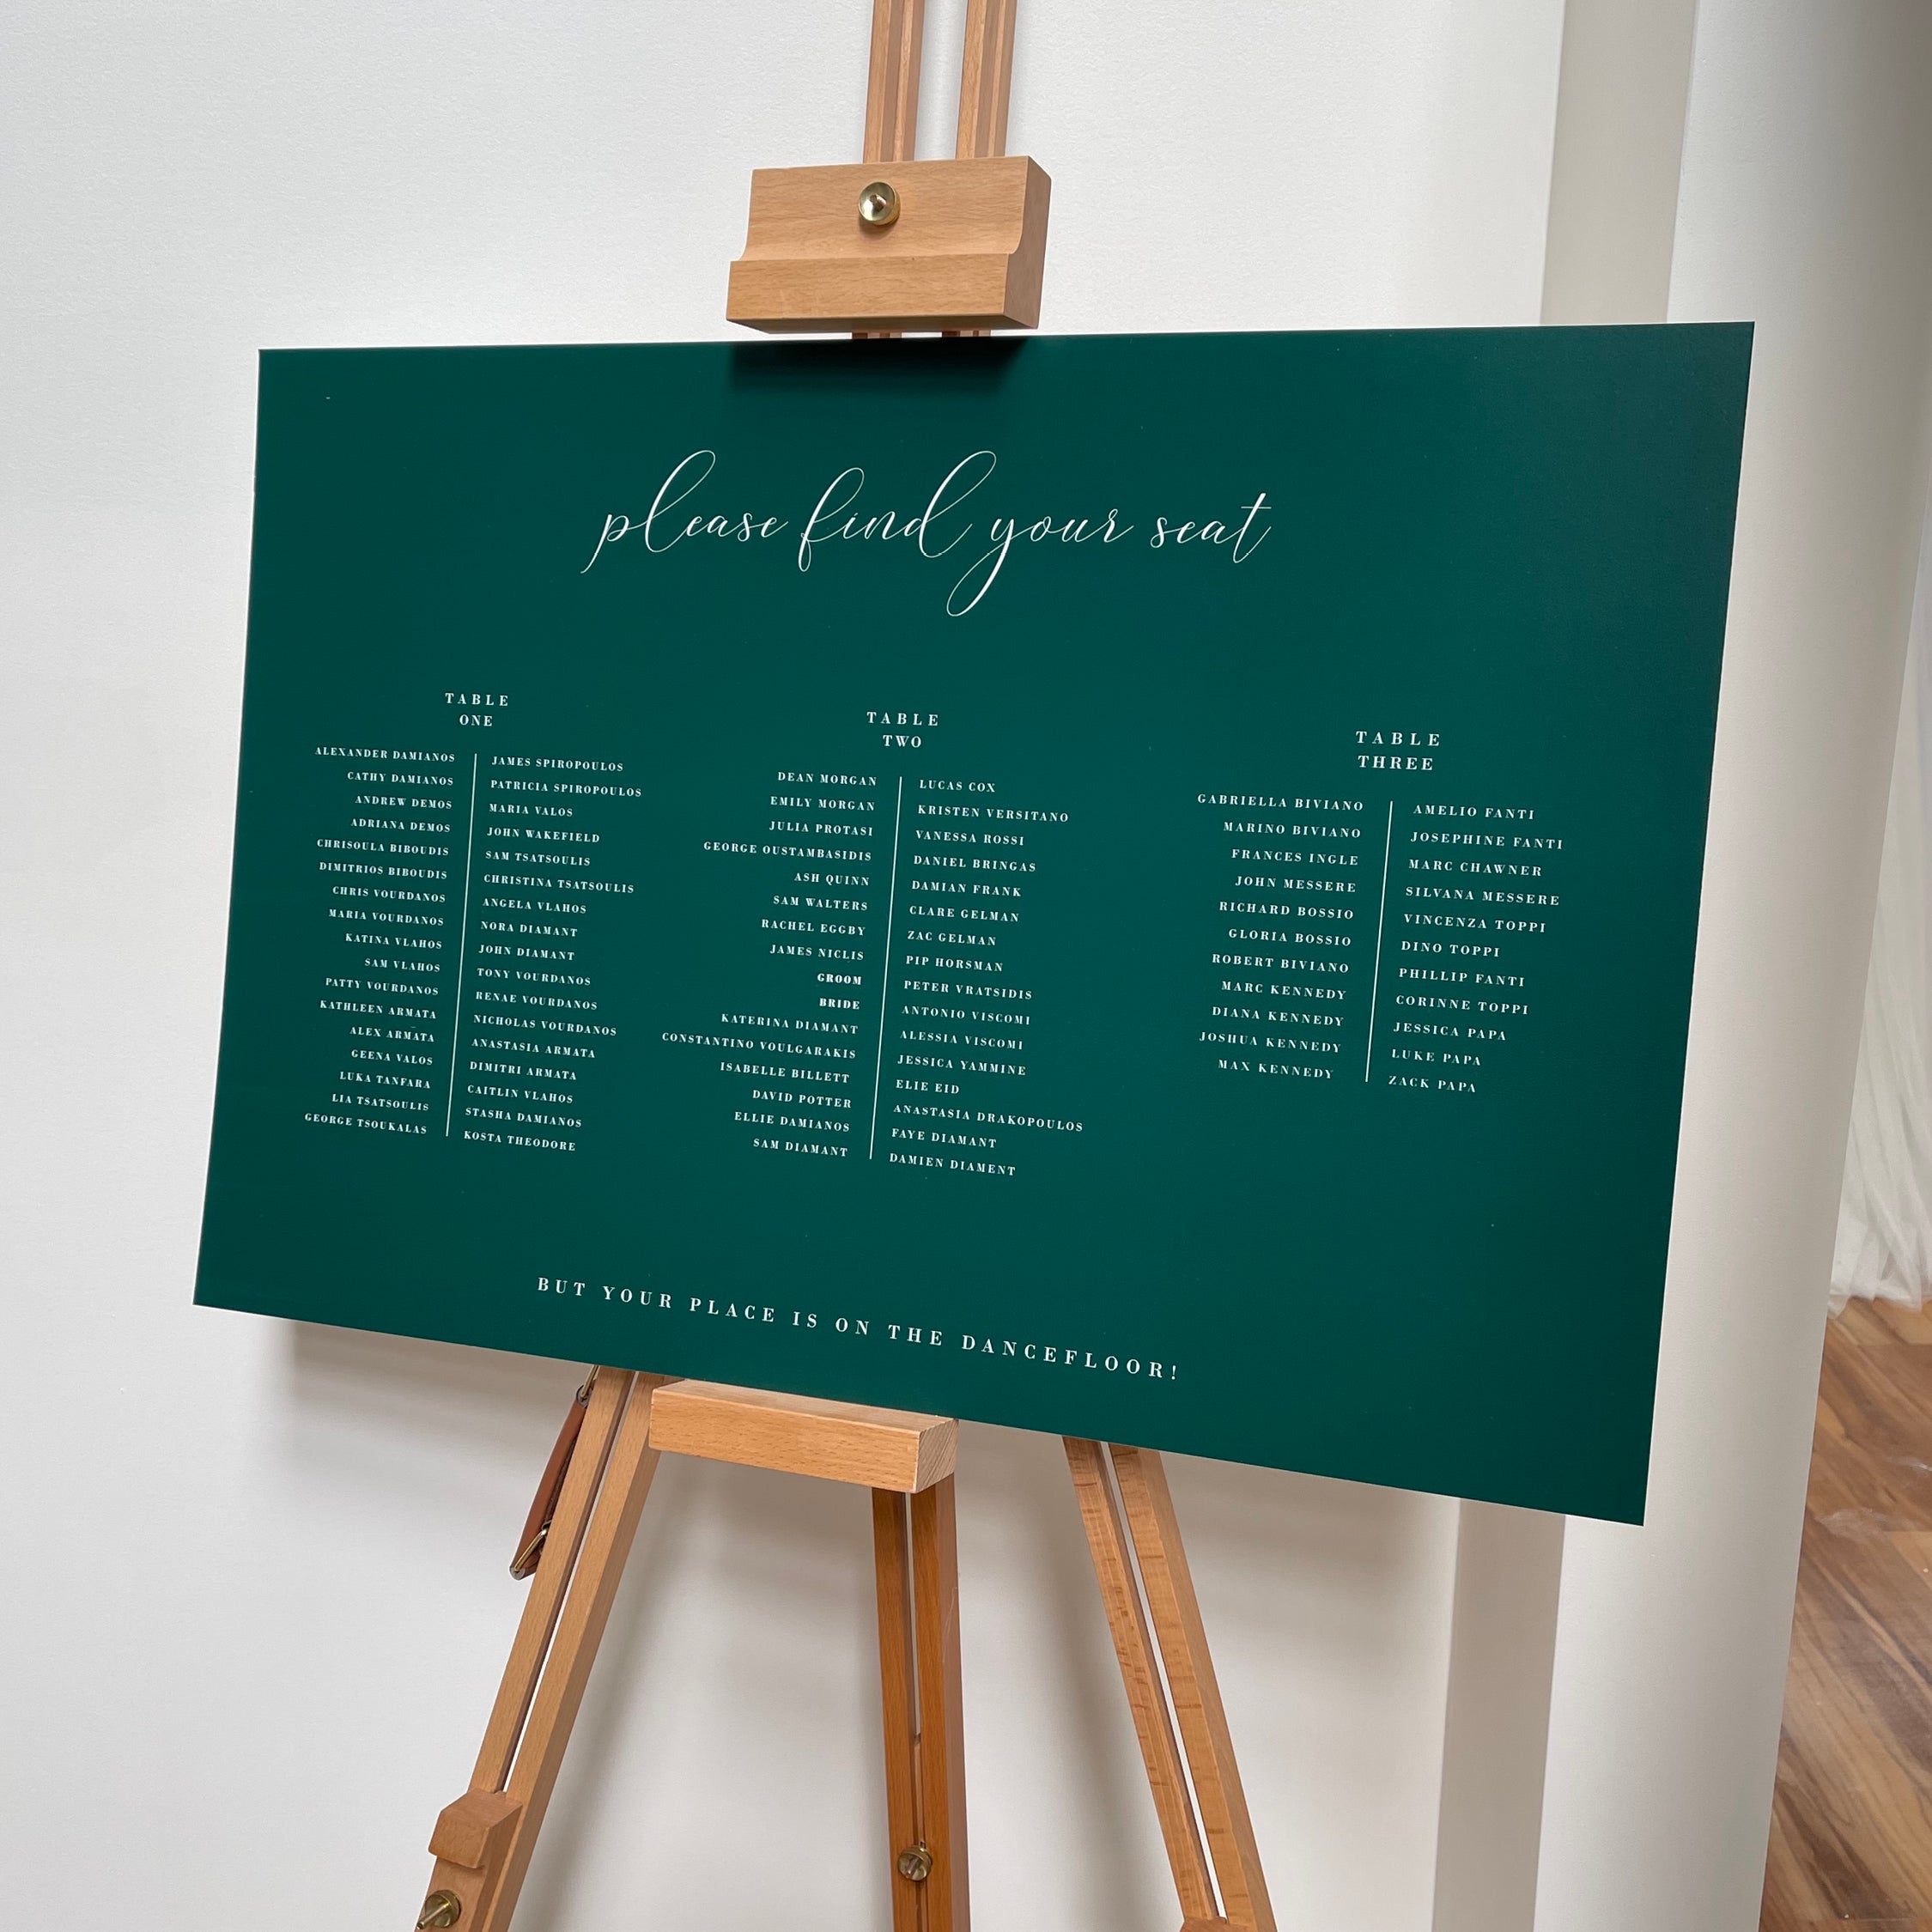 please find your seat
TABLE
ONE
ALEXANDER DAMIANOS
CATHY DAMIANOS
ANDREW DEMOS
ADRIANA DEMOS
CHRISOULA BIBOUDIS
DIMITRIOS BIBOUDIS
CHRIS VOURDANOS
MARIA VOURDANOS
KATINA VLAHOS
SAM VLAHOS
PATTY VOURDANOS
KATHLEEN ARMATA
ALEX ARMATA
GEENA VALOS
LUKA TANFARA
LIA TSATSOULIS
GEORGE TSOUKALAS
JAMES SPIROPOULOS
PATRICIA SPIROPOULOS
MARIA VALOS
JOHN WAKEFIELD
SAM TSATSOULIS
CHRISTINA TSATSOULIS
ANGELA VLAHOS
NORA DIAMANT
JOHN DIAMANT
TONY VOURDANOS
RENAE VOURDANOS
NICHOLAS VOURDANOS
ANASTASIA ARMATA
DIMITRI ARMATA
CAITLIN VLAHOS
STASHA DAMIANOS
KOSTA THEODORE
TABLE
TWO
DEAN MORGAN
EMILY MORGAN
JULIA PROTASI
GEORGE OUSTAMBASIDIS
ASH QUINN
SAM WALTERS
RACHEL EGGBY
JAMES NICLIS
GROOM
BRIDE
KATERINA DIAMANT
CONSTANTINO VOULGARAKIS
ISABELLE BILLETT
DAVID POTTER
ELLIE DAMIANOS
SAM DIAMANT
LUCAS COX
KRISTEN VERSITANO
VANESSA ROSSI
DANIEL BRINGAS
DAMIAN FRANK
CLARE GELMAN
ZAC GELMAN
PIP HORSMAN
PETER VRATSIDIS
ANTONIO VISCOMI
ALESSIA VISCOMI
JESSICA YAMMINE
ELIE EID
ANASTASIA DRAKOPOULOS
FAYE DIAMANT
DAMIEN DIAMENT
TABLE
THREE
GABRIELLA BIVIANO
MARINO BIVIANO
FRANCES INGLE
JOHN MESSERE
RICHARD BOSSIO
GLORIA BOSSIO
ROBERT BIVIANO
MARC KENNEDY
DIANA KENNEDY
JOSHUA KENNEDY
MAX KENNEDY
AMELIO FANTI
JOSEPHINE FANTI
MARC CHAWNER
SILVANA MESSERE
VINCENZA TOPPI
DINO TOPPI
PHILLIP FANTI
CORINNE TOPPI
JESSICA PAPA
LUKE PAPA
ZACK PAPA
BUT YOUR PLACE IS ON THE DANCEFLOOR!